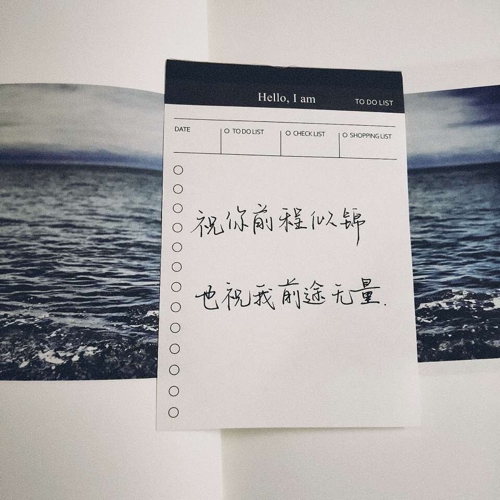 Hello, I am
TO DO LIST
DATE
TO DO LIST
CHECK LIST
SHOPPING LIST
祝你前程似锦
也祝我前途无量.